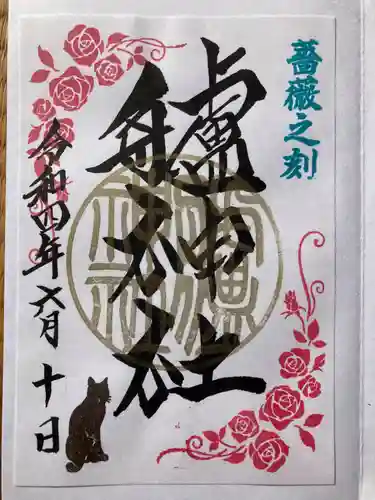 薔薇之刻
艫神社
令和四年六月十日